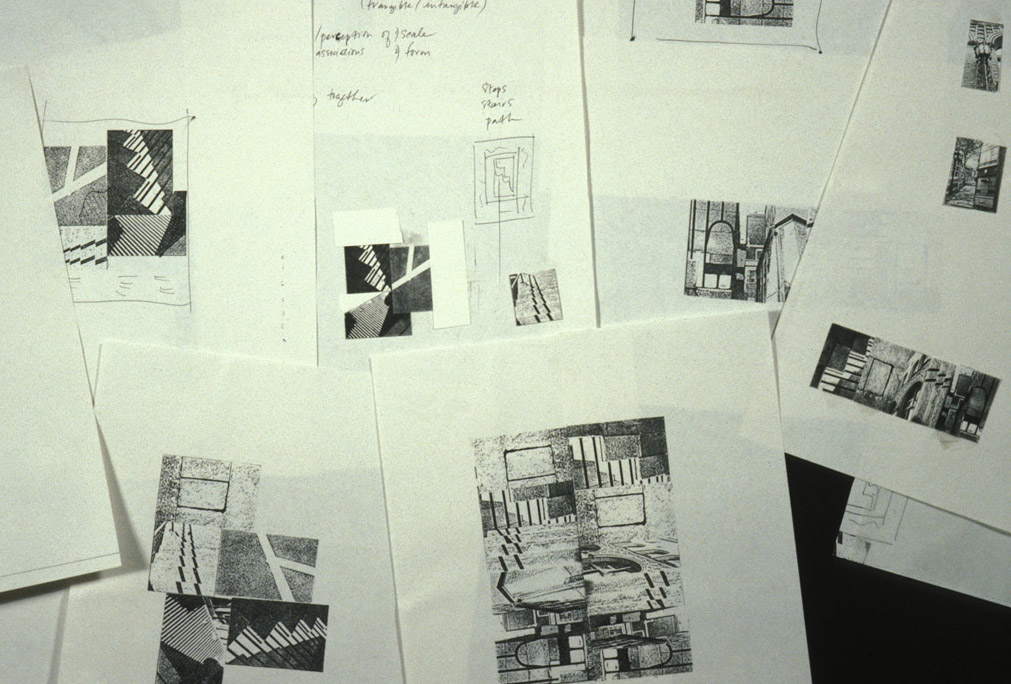 (tangible/intangible)
/perception of } scale
associations } form
together
steps
stairs
path